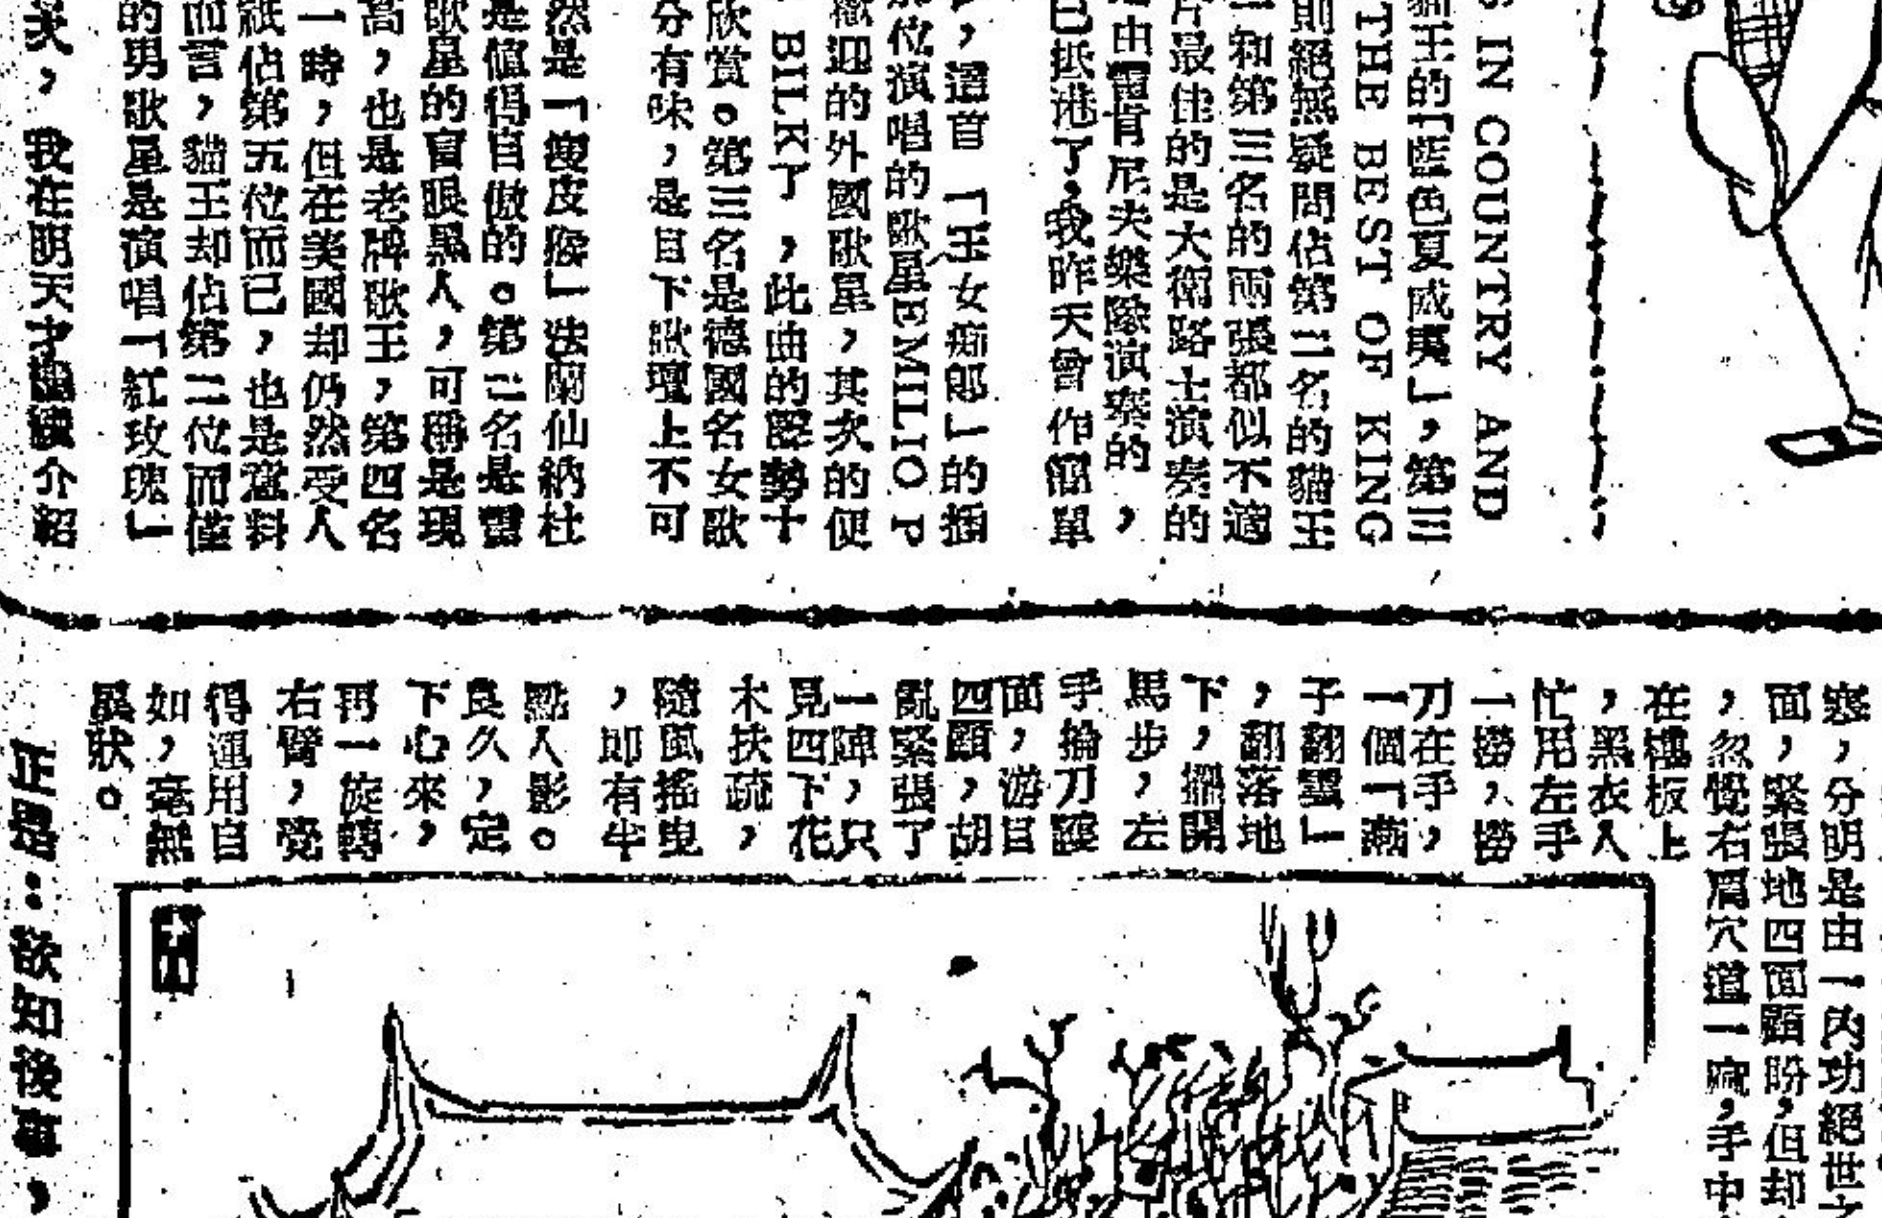 S IN COUNTRY AND
貓王的「藍色夏威夷」，第三
THE BEST OF KING
則絕無疑問佔第二名的貓王
二和第三名的兩張都似不適
片最佳的是大衛路士演奏的
由雷肯尼夫樂隊演奏的，
已抵港了，我昨天曾作簡單
，這首「玉女痴郎」的插
位演唱的歌星EMILIO P
歡迎的外國歌星，其次的便
BILK了，此曲的聲勢十
欣賞。第三名是德國名女歌
分有味，是目下歌壇上不可
然是「瘦皮猴」法蘭仙納杜
是值得自傲的。第二名是雷
歌星的盲眼黑人，可稱是現
高，也是老牌歌王，第四名
一時，但在美國却仍然受人
祇佔第五位而已，也是意料
而言，貓王却佔第二位而僅
的男歌星是演唱「紅玫瑰」
我在明天才繼續介紹
，分明是由一內功絕世之
面，緊張地四面顧盼，但却
，忽覺右肩穴道一麻，手中
在樓板上
，黑衣人
忙用左手
一撈，撈
刀在手，
一個「燕
子翻雲」
，翻落地
下，擺開
馬步，左
手掄刀護
面，游目
四顧，胡
亂緊張了
一陣，只
見四下花
木扶疏，
隨風搖曳
，即有半
點人影。
良久，定
下心來，
再一旋轉
右臂，覺
得運用自
如，毫無
異狀。
正是：欲知後事，